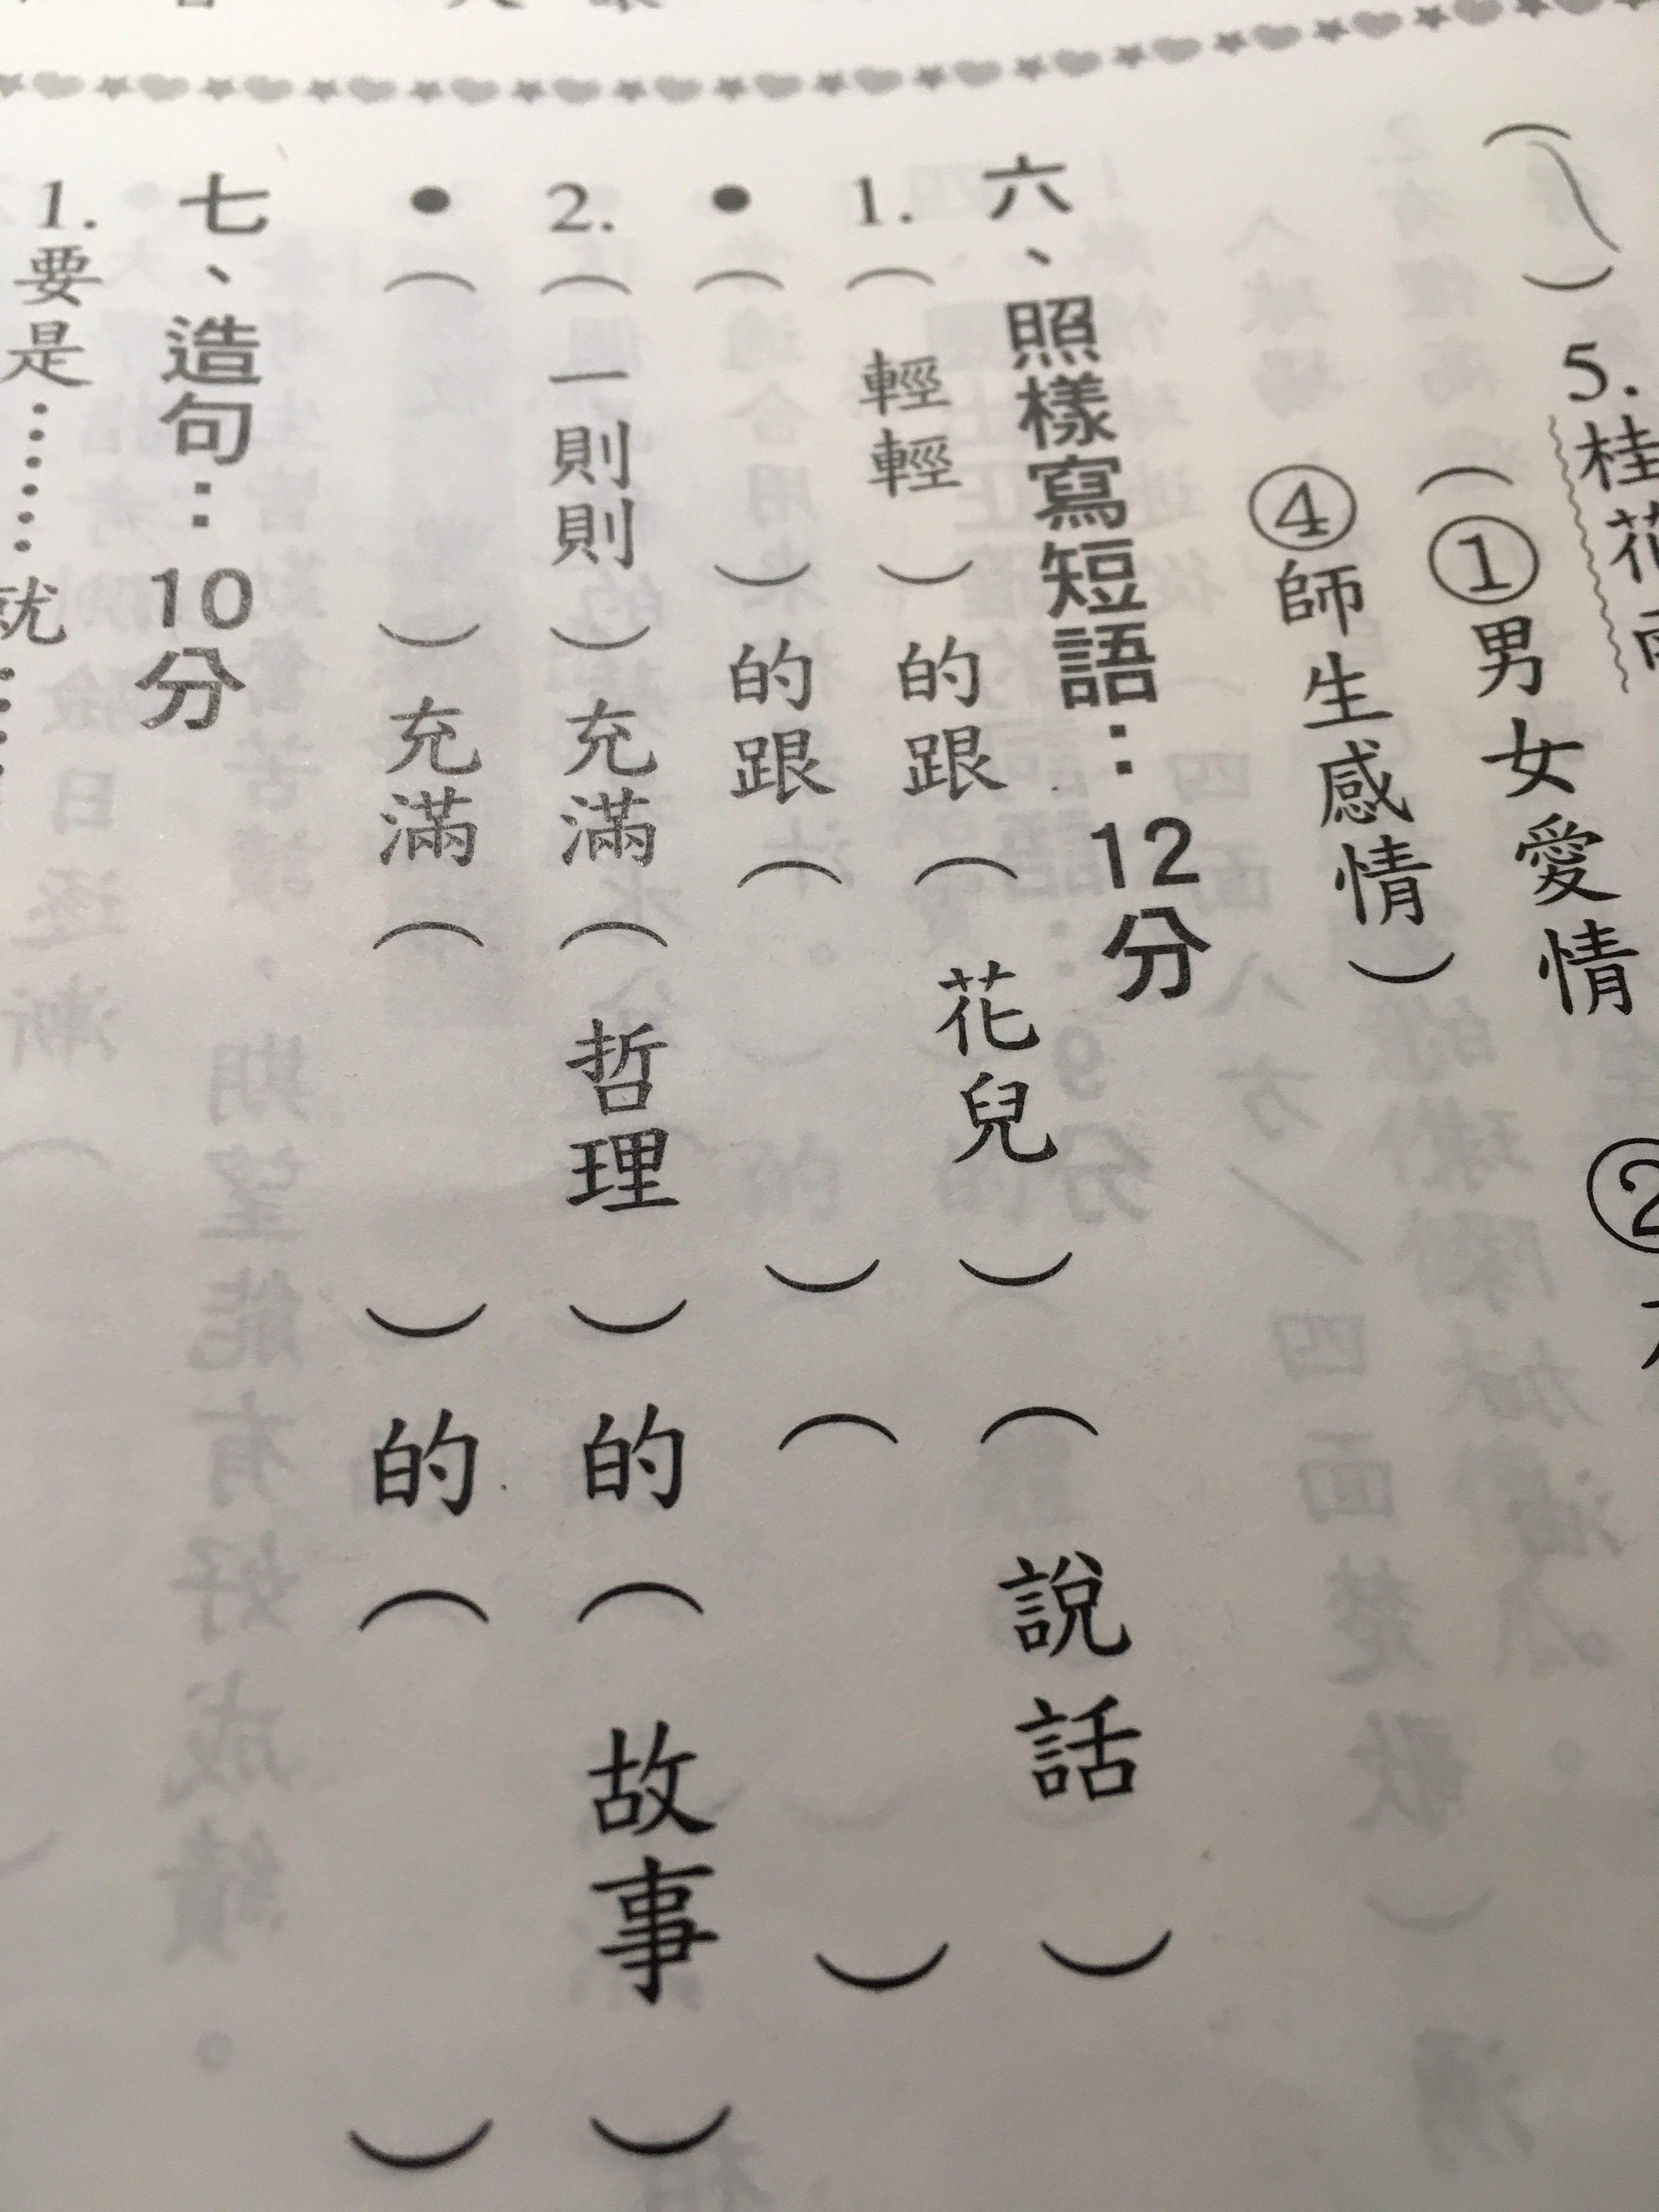 5.桂花
(①男女愛情 ②
④師生感情)
六、照樣寫短語：12分
1.(輕輕)的跟(花兒)(說話)
●( )的跟( )( )
2.(一則則)充滿(哲理)的(故事)
●( )充滿( )的( )
七、造句：10分
1.要是……就……